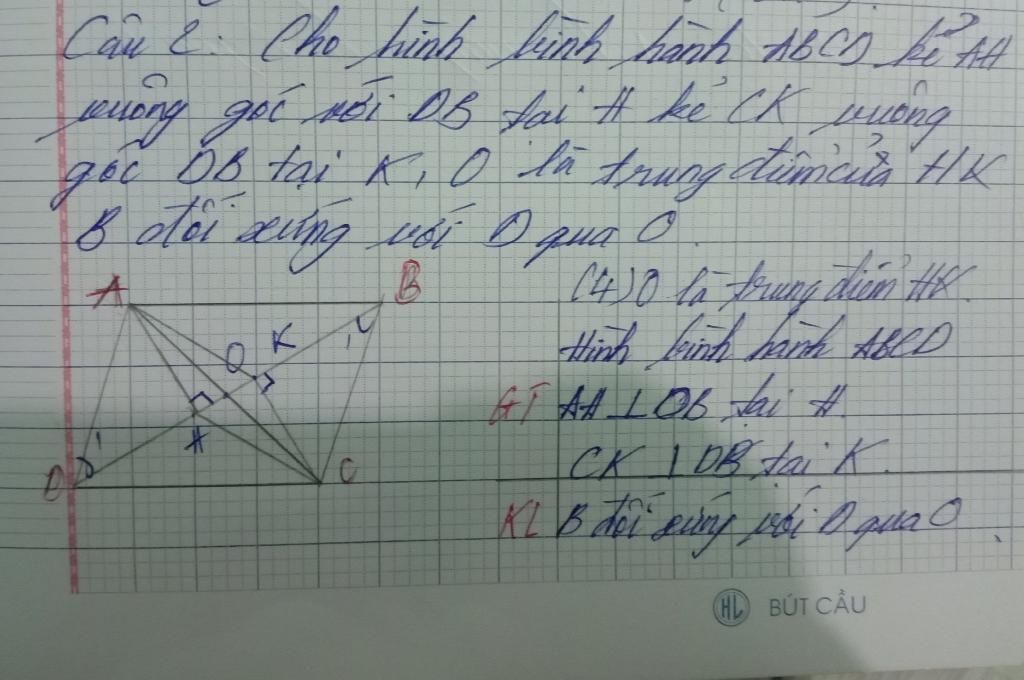 Câu 2: Cho hình bình hành ABCD kẻ AH
vuông góc với DB tại H kẻ CK vuông
góc DB tại K, O là trung điểm của HK
B đối xứng với D qua O.
A
B
K
O
1
1
H
D
C
(4) O là trung điểm HK.
Hình bình hành ABCD
GT AH ⊥ DB tại H.
CK ⊥ DB tại K.
KL B đối xứng với D qua O
HL BÚT CẦU